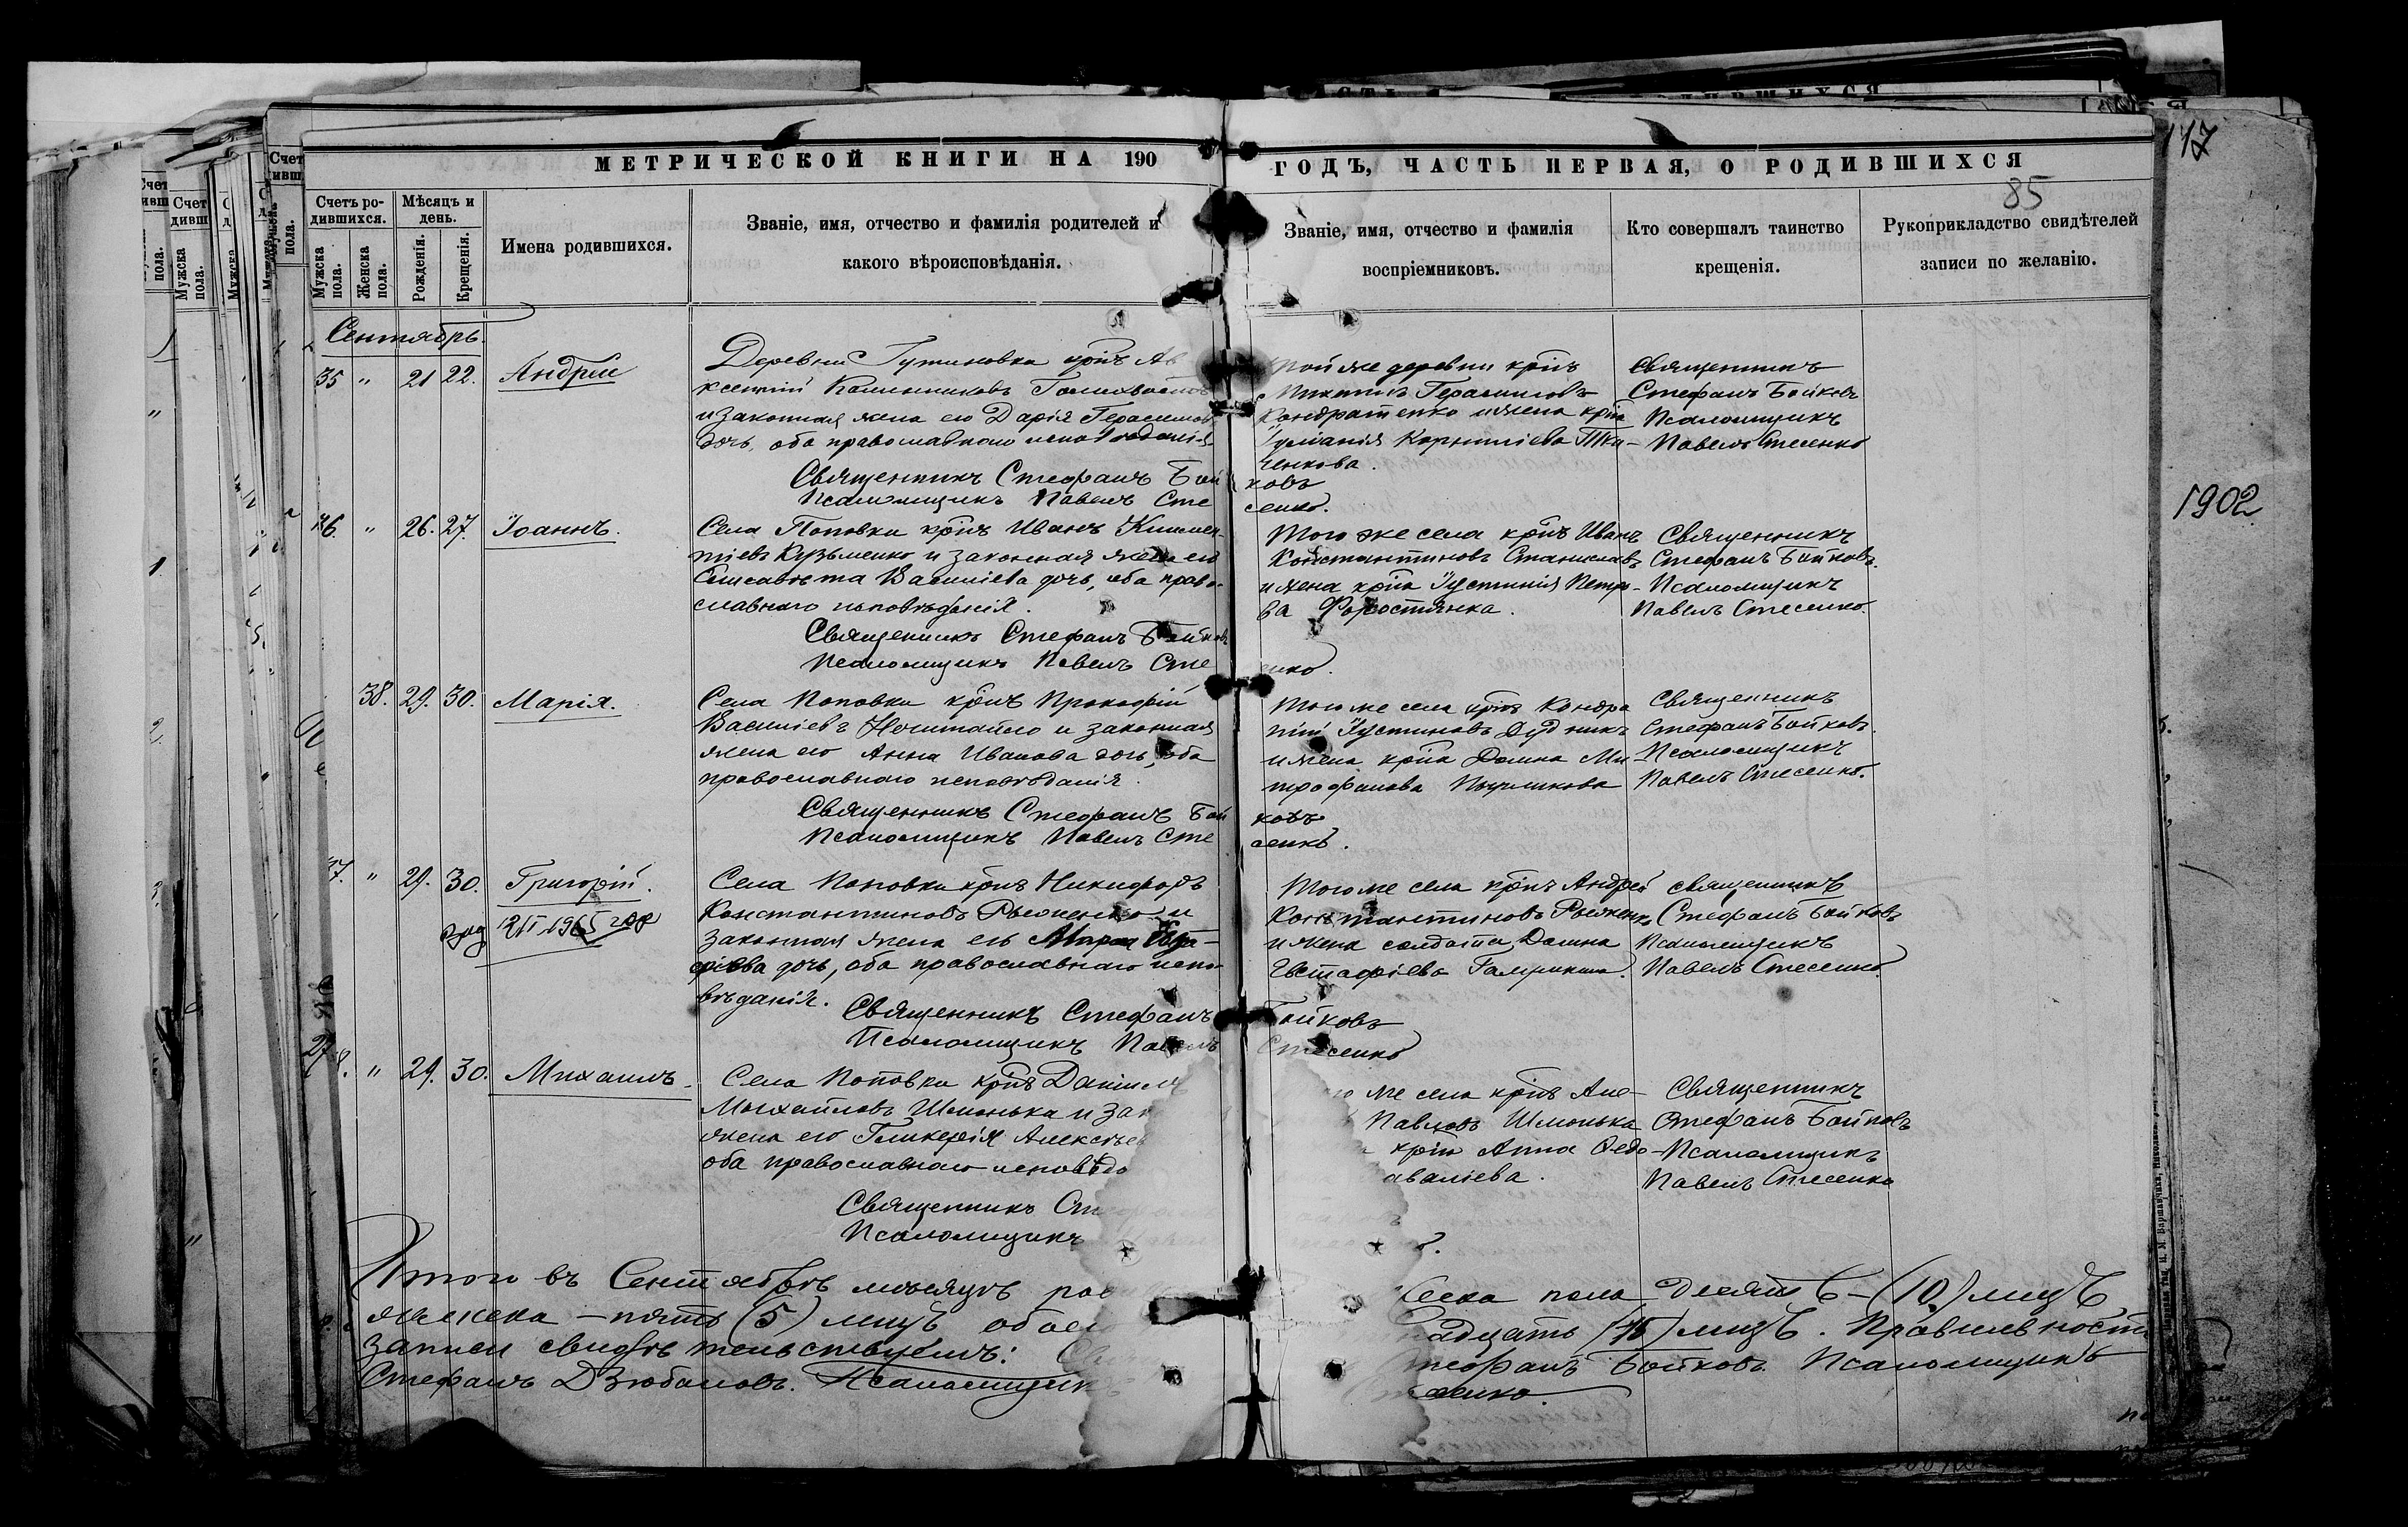 МЕТРИЧЕСКОЙ КНИГИ НА 190
ГОДЪ, ЧАСТЬ ПЕРВАЯ, О РОДИВШИХСЯ
117
85
Счетъ родившихся.
Мужска пола.
Женска пола.
Мѣсяцъ и день.
Рожденія.
Крещенія.
Имена родившихся.
Званіе, имя, отчество и фамилія родителей и
какого вѣроисповѣданія.
Званіе, имя, отчество и фамилія
воспріемниковъ.
Кто совершалъ таинство
крещенія.
Рукоприкладство свидѣтелей
записи по желанію.
1902
Сентябрь.
35 " 21 22. Андрей
Деревни Гутиновка крнъ Ав
ксентій
и законная жена его Дарія Герасимов
дочь, оба православнаго исповѣданія
Священникъ Стефанъ Бой
Псаломщикъ Павелъ Сте
Той же деревни крнъ
Герасимовъ
Кондратенко и жена крна
Іуліанія Корниліева Тка-
ченкова.
ковъ
сенко.
Священникъ
Стефанъ Бойковъ
Псаломщикъ
Павелъ Стесенко
36. " 26. 27. Іоаннъ.
Села Поповки крнъ Иванъ Климен-
тіевъ Кузьменко и законная жена его
Елисавета Василіева дочь, оба право-
славнаго исповѣданія.
Священникъ Стефанъ Бойковъ
Псаломщикъ Павелъ Сте
Того же села крнъ Иванъ
Константиновъ Станиславъ
и жена крна Іустинія Петро-
ва Форостянка.
енко.
Священникъ
Стефанъ Бойковъ.
Псаломщикъ
Павелъ Стесенко.
38. 29. 30. Марія.
Села Поповки крнъ Прокофій
Василіевъ и законная
жена его Анна Иванова дочь, оба
православнаго исповѣданія.
Священникъ Стефанъ Бой
Псаломщикъ Павелъ Сте
Того же села крнъ Кондра
тій Іустиновъ Дудникъ
и жена крна Домна Ми-
трофанова
ковъ
сенко.
Священникъ
Стефанъ Бойковъ.
Псаломщикъ
Павелъ Стесенко.
37. " 29. 30. Григорій.
Села Поповки крнъ Никифоръ
Константиновъ Рыженко и
законная жена его Марія
фіева дочь, оба православнаго испо-
вѣданія.
Священникъ Стефанъ
Псаломщикъ Павелъ
Того же села крнъ Андрей
Константиновъ Рыженко
и жена солдата Домна
Евстафіева
Бойковъ
Стесенко
Священникъ
Стефанъ Бойковъ
Псаломщикъ
Павелъ Стесенко.
8. " 29. 30. Михаилъ.
Села Поповки крнъ Даніилъ
Михайловъ Шмонька и зак
жена его Гликерія Алексѣев
оба православнаго исповѣда
Священникъ Ст
Псаломщикъ
же села крнъ Але-
Павловъ Шмонька
крна Анна Федо-
аваліева.
Священникъ
Стефанъ Бойковъ
Псаломщикъ
Павелъ Стесенко
Итого въ Сентябрѣ мѣсяцѣ род
женска - пять (5) лицъ обоего
записи свидѣтельствуемъ: Св
Стефанъ Дзюбановъ. Псаломщикъ
ска пола десять - (10) лицъ,
надцать (15) лицъ. Правильность
тефанъ Бойковъ Псаломщикъ
сенко.